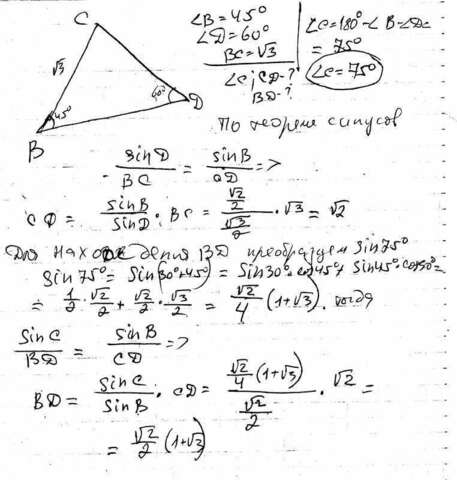 C
√3
60°
D
45°
B
∠B = 45°
∠D = 60°
BC = √3
∠C; CD-?
BD-?
∠C = 180° - ∠B - ∠D =
= 75°
∠C = 75°
По теореме синусов
sinD/BC = sinB/CD =>
CD = sinB/sinD · BC = (√2/2)/(√3/2) · √3 = √2
Для нахождения BD преобразуем sin75°
sin75° = sin(30°+45°) = sin30°·cos45° + sin45°·cos30° =
= 1/2 · √2/2 + √2/2 · √3/2 = √2/4 (1+√3). тогда
sinC/BD = sinB/CD =>
BD = sinC/sinB · CD = (√2/4 (1+√3))/(√2/2) · √2 =
= √2/2 (1+√3)